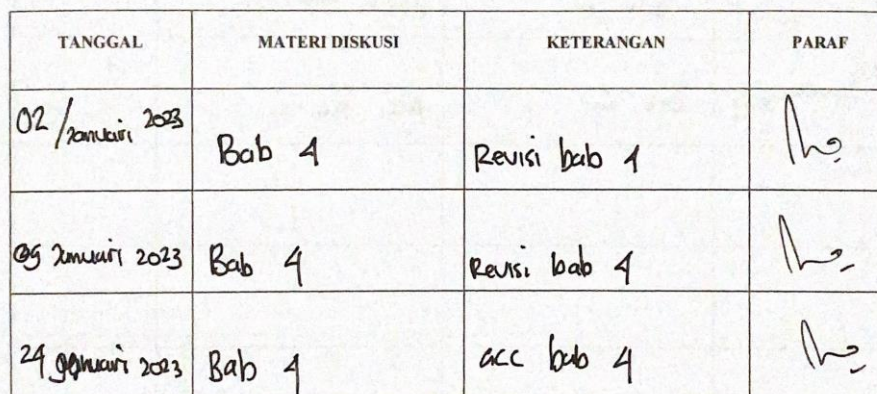 TANGGAL MATERI DISKUSI KETERANGAN PARAF
02/Januari 2023 Bab 4 Revisi bab 4
09 Januari 2023 Bab 4 Revisi bab 4
24 Januari 2023 Bab 4 acc bab 4